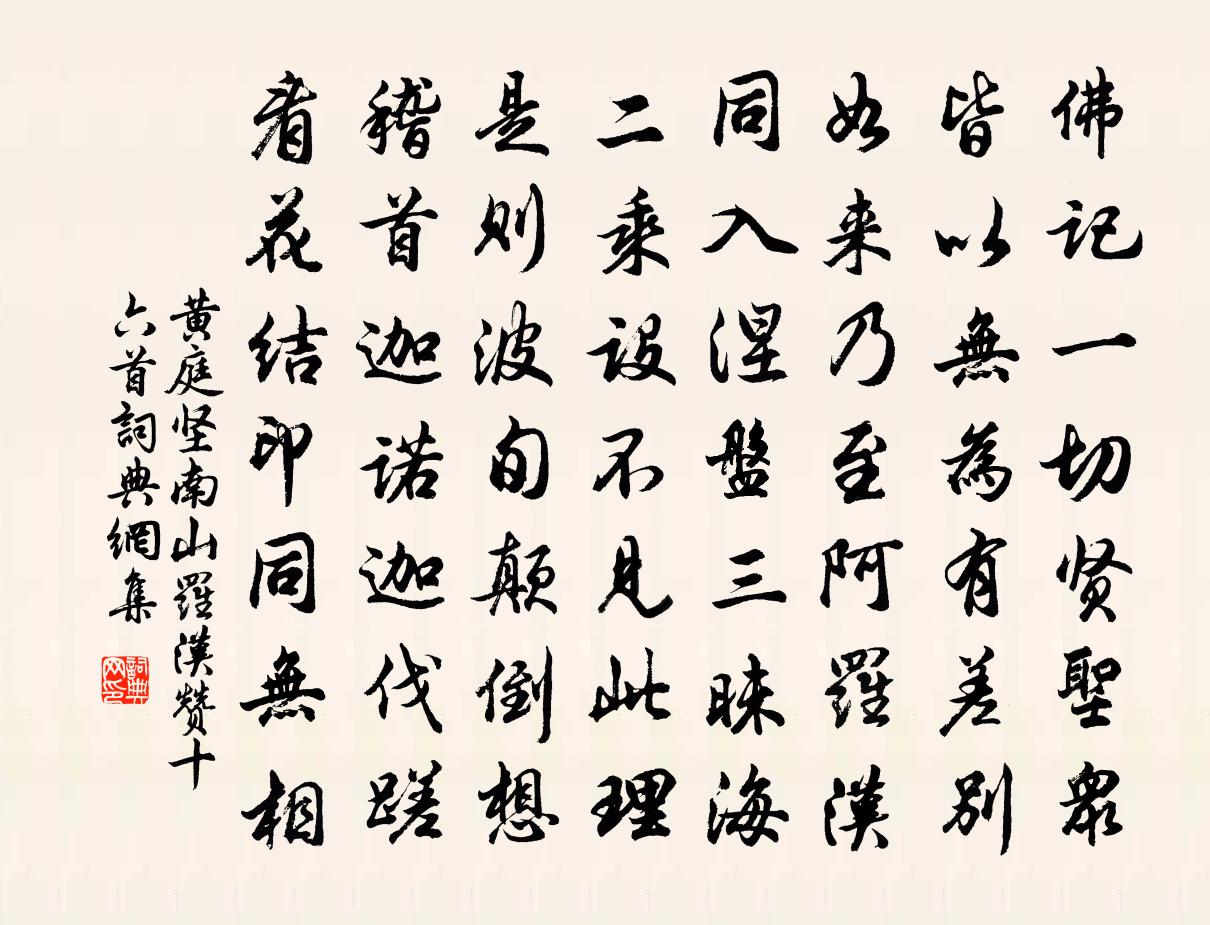 佛记一切贤聖衆
皆以無為有差别
如来乃至阿羅漢
同入涅盤三昧海
二乘設不見此理
是则波旬颠倒想
稽首迦诺迦伐蹉
看花结印同無相
黄庭坚南山羅漢赞十
六首詞典網集
詞典网印